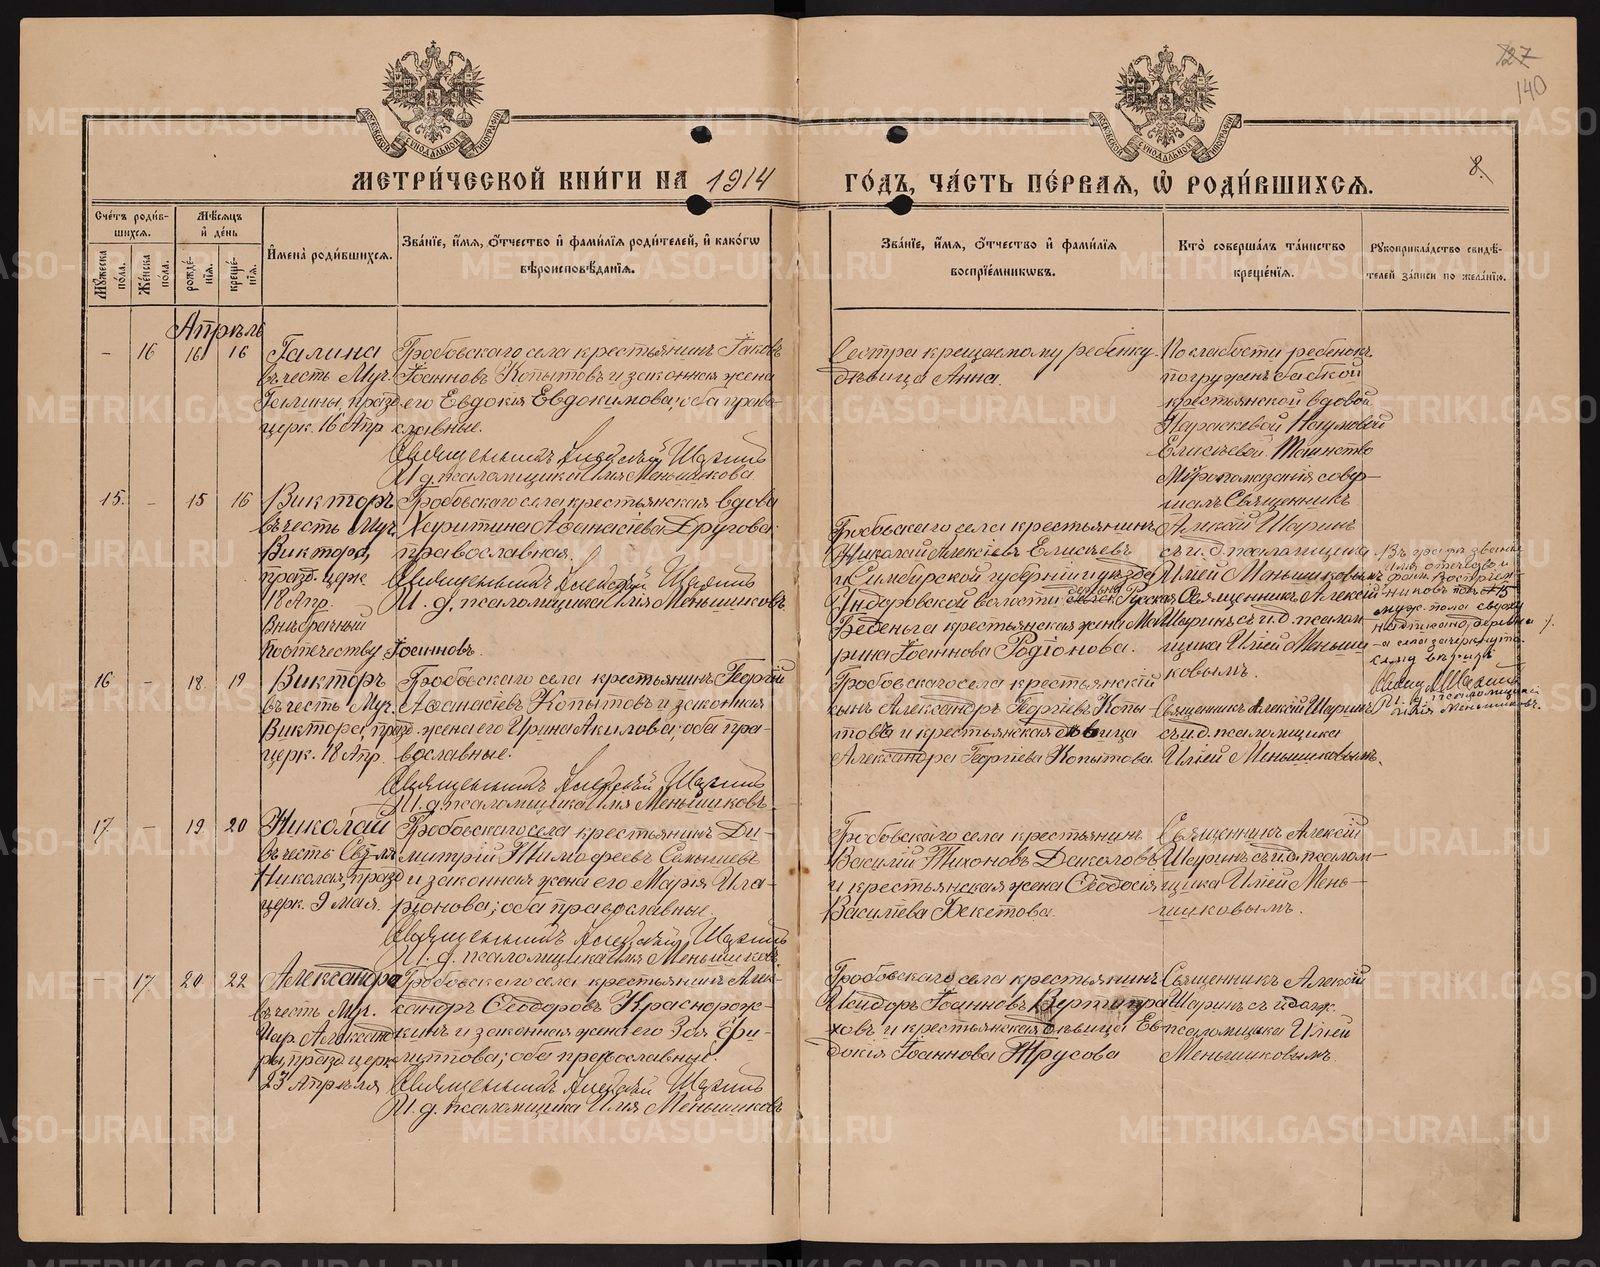 127
140
8.
МОСКОВСКОЙ СѴНОДАЛЬНОЙ ТИПОГРАФІИ
МОСКОВСКОЙ СѴНОДАЛЬНОЙ ТИПОГРАФІИ
МЕТРИ́ЧЕСКОЙ КНИ́ГИ НА 1914
ГО́ДЪ, ЧА́СТЬ ПЕ́РВАЯ, Ѡ РОДИ́ВШИХСЯ.
Сче́тъ роди́в-
шихся.
Мѣ́сяцъ
и де́нь
Му́жеска по́ла.
Же́нска по́ла.
рожде́-
нїя.
креще́-
нїя.
Имена̀ роди́вшихся.
Зва́нїе, и́мя, о́тчество и фами́лїя роди́телей, и како́гѡ
вѣроисповѣ́данїя.
Зва́нїе, и́мя, о́тчество и фами́лїя
воспрїе́мникѡвъ.
Кто̀ соверша́лъ та́инство
креще́нїя.
Рукоприкла́дство свидѣ́-
телей за́писи по жела́нїю.
Апрѣль
- 16 16 16
Галина
въ честь Муч.
Галины, празд.
церк. 16 Апр.
Гробовскаго села крестьянинъ Іаковъ
Іоанновъ Копытовъ и законная жена
его Евдокія Евдокимова; оба право-
славные.
Священникъ Алексѣй Шаринъ
И. д. псаломщика Илія Меньшиковъ
Сестра крещаемому ребенку
дѣвица Анна.
По слабости ребенокъ
погруженъ бабкой
крестьянской вдовой
Параскевой Наумовой
Елисѣевой Таинство
Мѵропомазанія совер-
шалъ Священникъ
Алексій Шаринъ
съ и. д. псаломщика
Иліей Меньшиковымъ
15. - 15 16
Викторъ
въ честь Муч.
Виктора,
празд. церк.
18 Апр.
Внѣбрачный
по отчеству Іоанновъ.
Гробовскаго села крестьянская вдова
Харитина Аѳанасіева Другова
православная.
Священникъ Алексѣй Шаринъ
И. д. псаломщика Илія Меньшиковъ
Гробовскаго села крестьянинъ
Николай Алексіевъ Елисѣевъ
и Симбирской губерніи и уѣзда
Ундоровской волости Русская
Беденьга крестьянская жена Ма-
рина Іоаннова Родіонова.
Священникъ Алексій
Шаринъ съ и. д. псалом-
щика Иліей Меньши-
ковымъ.
Въ графѣ званіе
имя отчество и
фам. воспріем-
никовъ подъ № 15
муж. пола сверху
надписано, деревня
-а села зачеркнуто.
Священ. А. Шаринъ
И. д. псаломщика
Илія Меньшиковъ.
16 - 18 19
Викторъ
въ честь Муч.
Виктора, празд.
церк. 18 Апр.
Гробовскаго села крестьянинъ Георгій
Аѳанасіевъ Копытовъ и законная
жена его Ирина Акилова; оба пра-
вославные.
Священникъ Алексѣй Шаринъ
И. д. псаломщика Илія Меньшиковъ.
Гробовскаго села крестьянскій
сынъ Александръ Георгіевъ Копы-
товъ и крестьянская дѣвица
Александра Георгіева Копытова.
Священникъ Алексій Шаринъ
съ и д. псаломщика
Иліей Меньшиковымъ.
17. - 19 20
Николай
въ честь Свят-ля
Николая, празд.
церк. 9 мая.
Гробовскаго села крестьянинъ Ди-
митрій Тимоѳеевъ
и законная жена его Марія Ила-
ріонова; оба православные.
Священникъ Алексѣй Шаринъ
И. д. псаломщика Илія Меньшиковъ.
Гробовскаго села крестьянинъ
Василій Тихоновъ
и крестьянская жена Ѳеодосія
Василіева Бекетова.
Священникъ Алексій
Шаринъ съ и. д. псалом-
щика Иліей Мень-
шиковымъ.
- 17 20 22
Александра
въ честь Муч.
Цар. Александ-
ры, празд. церк.
23 Апрѣля
Гробовскаго села крестьянинъ Алек-
сандръ Ѳеодоровъ
и законная жена его Зоя Фи-
липпова; оба православные.
Священникъ Алексѣй Шаринъ
И. д. псаломщика Илія Меньшиковъ
Гробовскаго села крестьянинъ
Исидоръ Іоанновъ
и крестьянская дѣвица Ев-
докія Іоаннова Трусова
Священникъ Алексій
Шаринъ съ и долж.
псаломщика Иліей
Меньшиковымъ.
METRIKI.GASO-URAL.RU